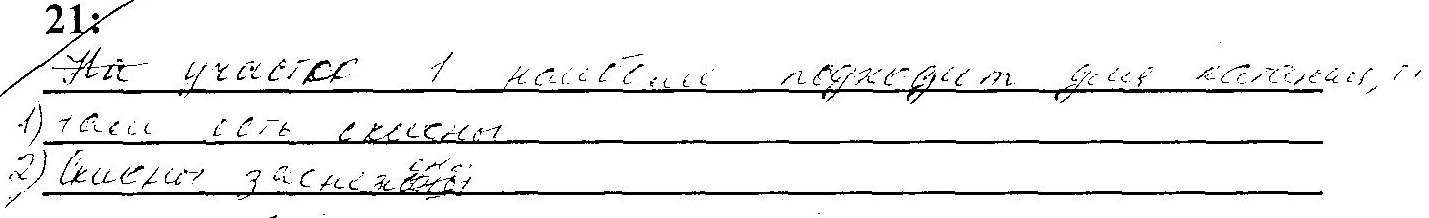 21:
На участке 1 наиболи подходит для катания, т.
1) там есть склоны
2) Склоны заснежены